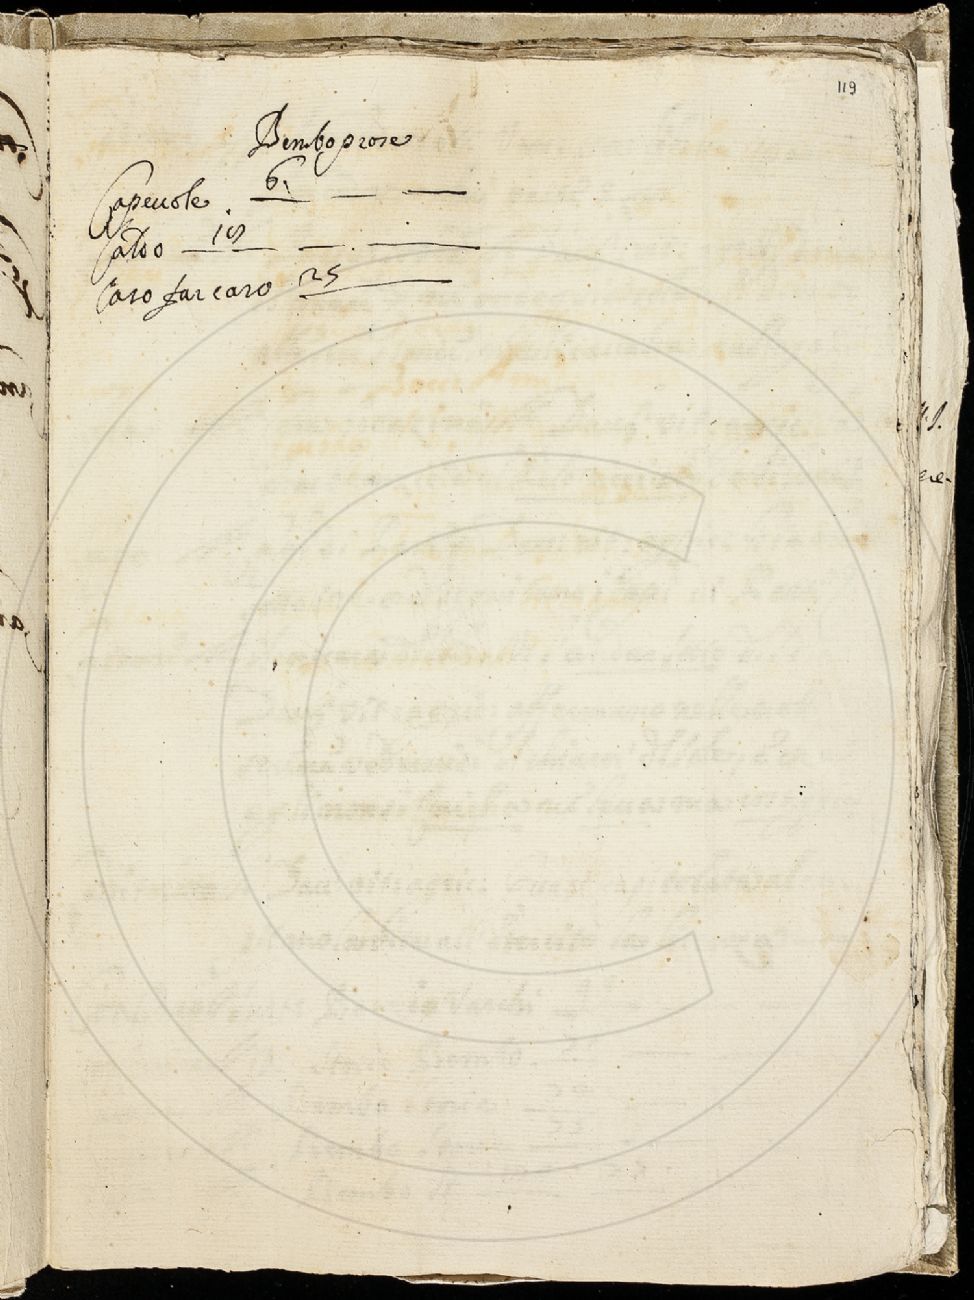 119
Bembo prose
Capeuole 6.
Caldo 19
Caro far caro 25